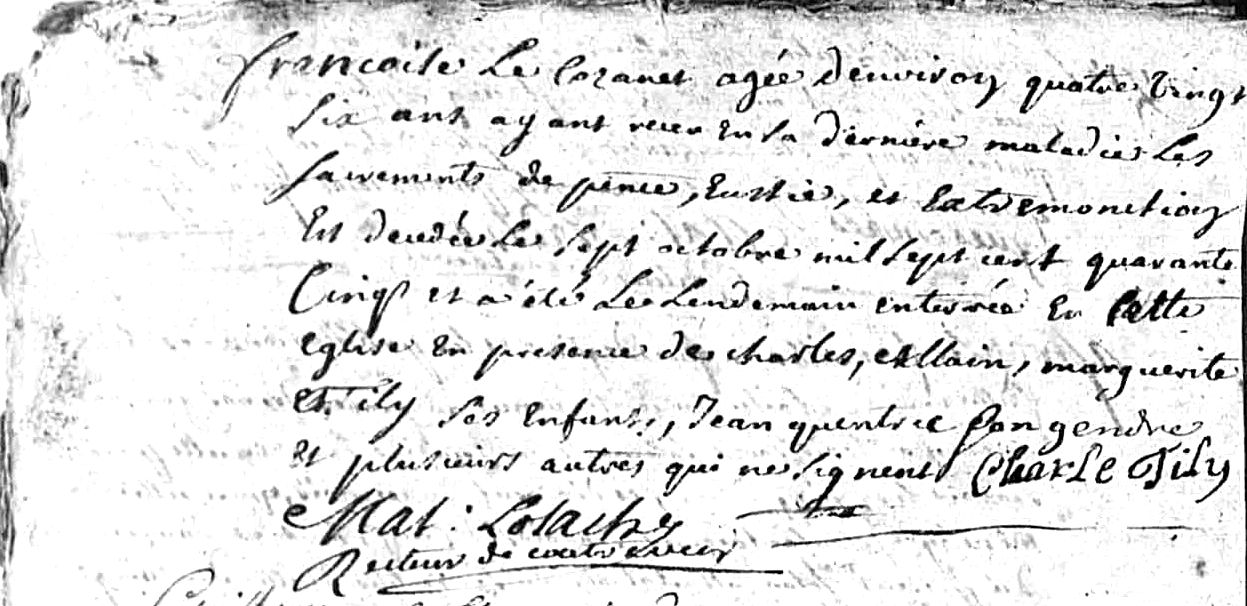 francoise Le Cozanet agée denviron quatre vingt
six ans ayant recu en sa derniere maladie les
sacrements de pence, Eustie, et Extremonction
Est decedée Le sept octobre mil sept cent quarante
Cinq et a été Le Lendemain enterrée En Cette
Eglise En presence de charles, allain, marguerite
et Tily ses Enfants, Jean quentric son gendre
et plusieurs autres qui ne signent Charle Tily
Mat:
Recteur de